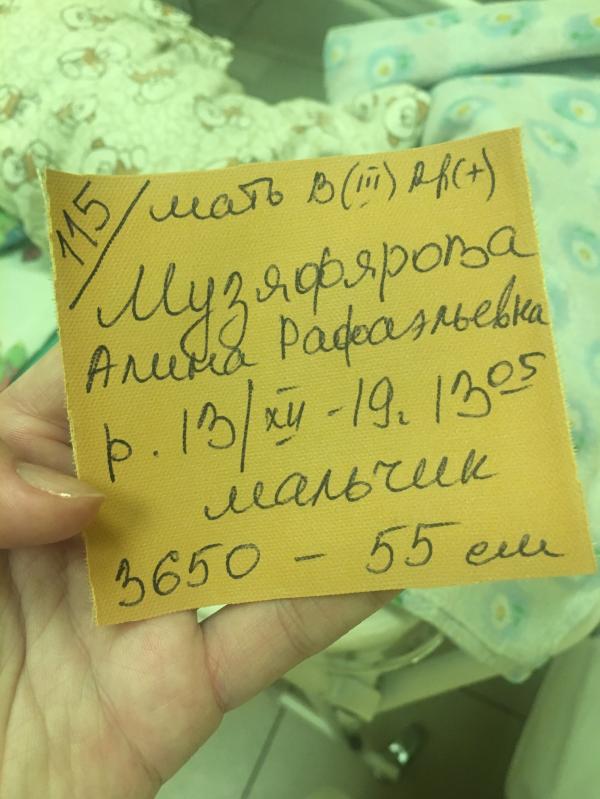 115/ мать В(III) Rh(+)
Музяфярова
Алина Рафаэльевна
р. 13/XII -19г. 13 05
мальчик
3650 - 55 см